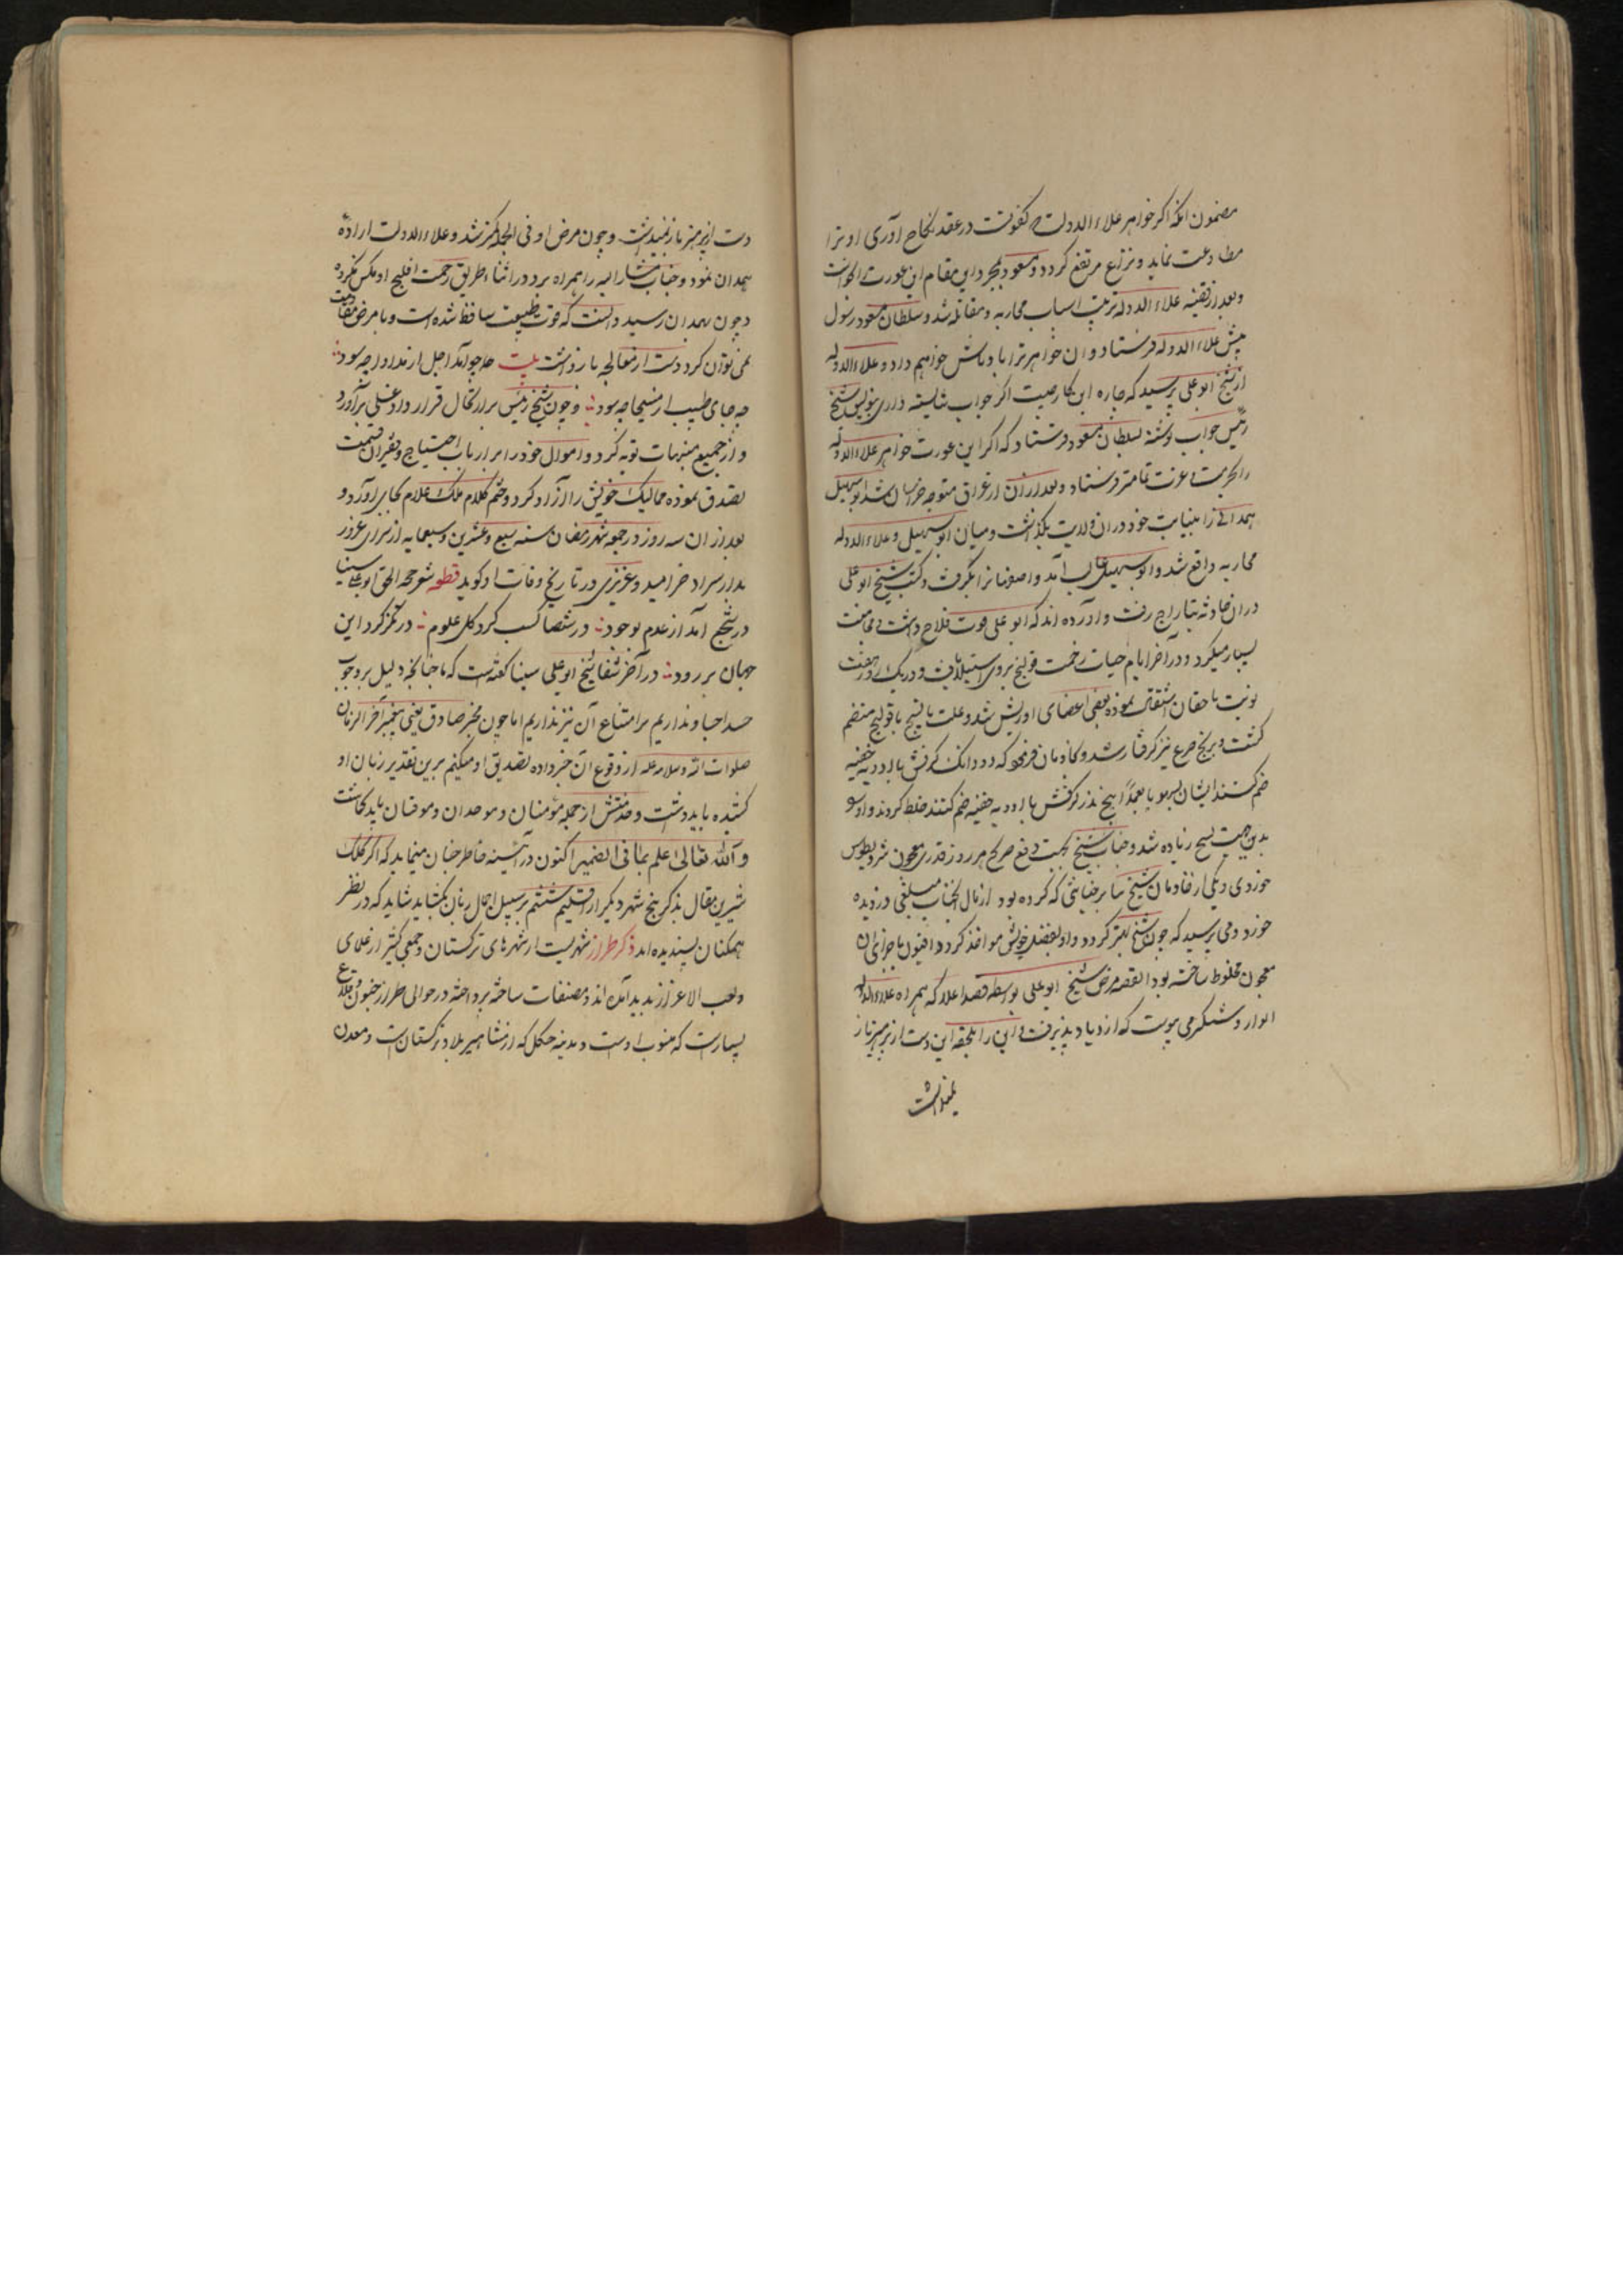 مضمون انکه اکر خواهر علاء الدوله که کفو تست در عقد نکاح اوری او ترا
مطاوعت نماید و نزاع مرتفع کردد و مسعود بمجرد این مقام این عورت را بخواست
و بعد از قضیه علاء الدوله ترتیب اسباب محاربه و مقاتله شد و سلطان مسعود رسول
پیش علاء الدوله فرستاد و ان خواهر ترا با وباش خواهم داد و علاء الدوله
از شیخ ابو علی پرسید که چاره این کار چیست اکر جواب شایسته داری بنویس شیخ
رئیس جواب نوشته بسلطان مسعود فرستاد که اکر این عورت خواهر علاء الدوله
را بحرمت و عزت تمامتر فرستاد و بعد از ان از عراق متوجه خراسان شد ابو سهیل
همدانی را بنیابت خود در ان ولایت بگذاشت و میان ابو سهیل و علاء الدوله
محاربه واقع شد و ابو سهیل غالب آمد و اصفهانرا بگرفت و کتب شیخ ابو علی
در ان حادثه بتاراج رفت و آورده اند که ابو علی قوت فلاح داشت و مجامعت
بسیار میکرد و در آخر ایام حیات زحمت قولنج بر وی استیلا یافت و در یک روز هفت
نوبت باحقان اشتقال نموده بعضی اعضای او ریش شد و علت با قولنج منضم
کشت و برنج صرع نیز کرفتار شد و خادمان فرمود که دو دانک کرفش با ادویه حقنه
ضم کنند ایشان بسهو یا بعمدا پنج بذر کرفش با ادویه حقنه ضم کنند خلط کردند و از او
بدین جهت سحج زیاده شد و جناب شیخ بجهت دفع صرع هر روز قدری معجون مثرودیطوس
خوردی و یکی از خادمان شیخ بنا بر خیانتی که کرده بود از مال انجناب مبلغی دزدیده
خورد و می پرسید که چون شیخ بهتر کردد و او بفعل خویش مواخذ کردد افیون با جزای ان
معجون مخلوط ساخته بود القصه مرض شیخ ابو علی بواسطه قصد اعدا که همراه علاء الدوله
الوار و شکر می بوست که ازدیاد پذیرفت و این را بلجقه این دست از پرهیز باز
نمیداشت
دست از پرهیز باز نمیداشت و چون مرض او فی الجمله کمتر شد و علاء الدوله اراده
همدان نمود و جناب مشار الیه را همراه برد در اثناء طریق زحمت قولنج او عکس نکرده
و چون بهمدان رسید دانست که قوت طبیعت ساقط شده است و با مرض مقاومت
نمی توان کرد و دست از معالجه باز داشت بیت چو آمد اجل از مداوا چه سود
چه جای طبیب از مسیحا چه سود و چون شیخ رئیس بر ارتحال قرار داد غسلی برآورد
و از جمیع منهیات توبه کرد و اموال خود را بر ارباب احتیاج و فقیران قسمت
تصدق نموده ممالیک خویش را آزاد کرد و ختم کلام ملک علام بجای آورد و
بعد از ان سه روز در جمعه شهر رمضان سنه سبع و عشرین و سبعمایه از سرای غرور
بدار سراد خرامید و عزیزی در تاریخ وفات او کوید قطعه شو حجة الحق ابو علی سینا
در شجع آمد از عدم بوجود در شصا کسب کرد کل علوم در تکز کرد این
جهان بررود در آخر شفا شیخ ابو علی سینا کفته است که ما چنانچه دلیل بر وجوب
حسد احباد نداریم بر امتناع آن نیز نداریم اما چون مخبر صادق یعنی پیغمبر آخر الزمان
صلوات الله و سلامه علیه از وقوع آن خبر داده تصدیق او میکنیم برین تقدیر زبان او
کشیده باید داشت و مدتش از جمله مؤمنان و موحدان و موقنان باید کاشت
و آلله تعالی اعلم بما فی الضمیر اکنون در آئینه خاطر چنان مینماید که اکر کلک
شیرین مقال بذکر پنج شهر دیکر از اقلیم ششم بر سبیل اجمال زبان بکشاید شاید که در نظر
همکنان پسندیده اند ذکر طراز شهریست از شهر های ترکستان و جمعی کثیر از علمای
واجب الاعزاز پدید آمده اند و مصنفات ساخته پرداخته در حوالی طراز حصون و قلاع
بسیارست که منسوب اوست و مدینه جکل که از مشاهیر بلاد ترکستانست و معدن